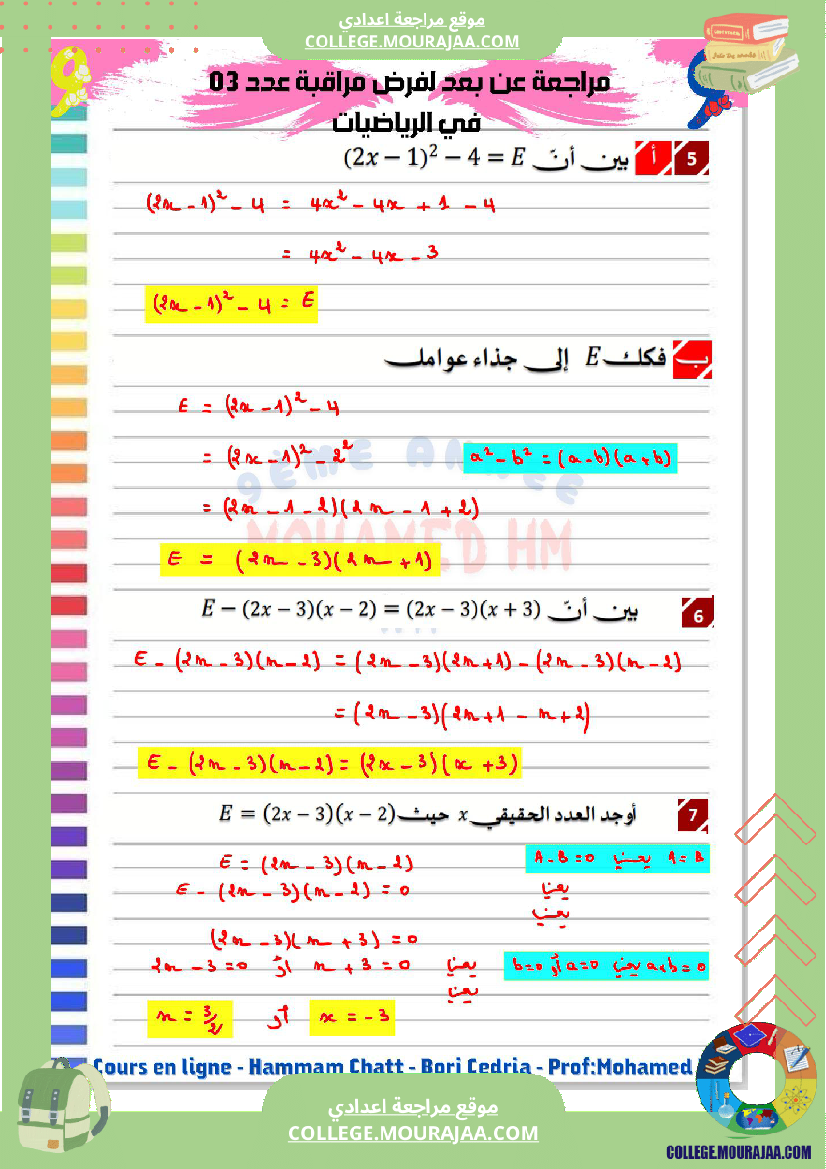 موقع مراجعة اعدادي
COLLEGE.MOURAJAA.COM
مراجعة عن بعد لفرض مراقبة عدد 03
في الرياضيات
5 أ بين أنّ (2x − 1)² − 4 = E
(2x − 1)² − 4 = 4x² − 4x + 1 − 4
= 4x² − 4x − 3
(2x − 1)² − 4 = E
ب فكك E إلى جذاء عوامل
E = (2x − 1)² − 4
= (2x − 1)² − 2² a² − b² = (a − b)(a + b)
= (2x − 1 − 2)(2x − 1 + 2)
9ÈME ANNEE
MOHAMED HM
E = (2x − 3)(2x + 1)
6 بين أنّ E − (2x − 3)(x − 2) = (2x − 3)(x + 3)
E − (2x − 3)(x − 2) = (2x − 3)(2x + 1) − (2x − 3)(x − 2)
= (2x − 3)(2x + 1 − x + 2)
E − (2x − 3)(x − 2) = (2x − 3)(x + 3)
7 أوجد العدد الحقيقي x حيث E = (2x − 3)(x − 2)
E = (2x − 3)(x − 2) A = B يعني A − B = 0
E − (2x − 3)(x − 2) = 0 يعني
يعني
(2x − 3)(x + 3) = 0
2x − 3 = 0 أو x + 3 = 0 يعني a×b = 0 يعني a = 0 أو b = 0
يعني
x = 3/2 أو x = −3
Cours en ligne - Hammam Chatt - Borj Cedria - Prof:Mohamed
موقع مراجعة اعدادي
COLLEGE.MOURAJAA.COM
COLLEGE.MOURAJAA.COM